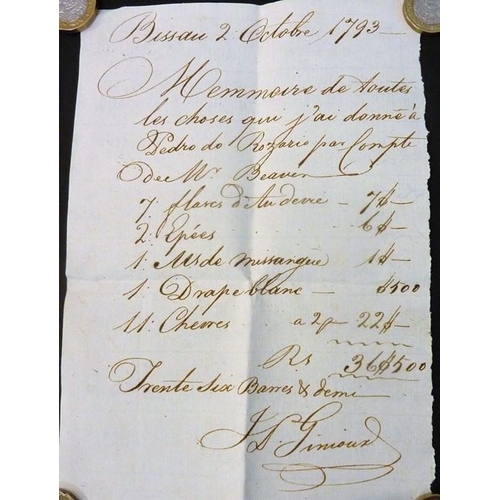 Bissau 2 Octobre 1793
Memmoire de toutes
les choses qui j'ai donné à
Pedro do Rozario par Compte
de Mr Beaver
7: flares d'Audevie - 7$-
2: Epées - 6$-
1: Ms de missangue 1$-
1: Drape blanc - $500
11: Chévres a 2p 22$-
Rs 36$500
Trente Six Barres & demi